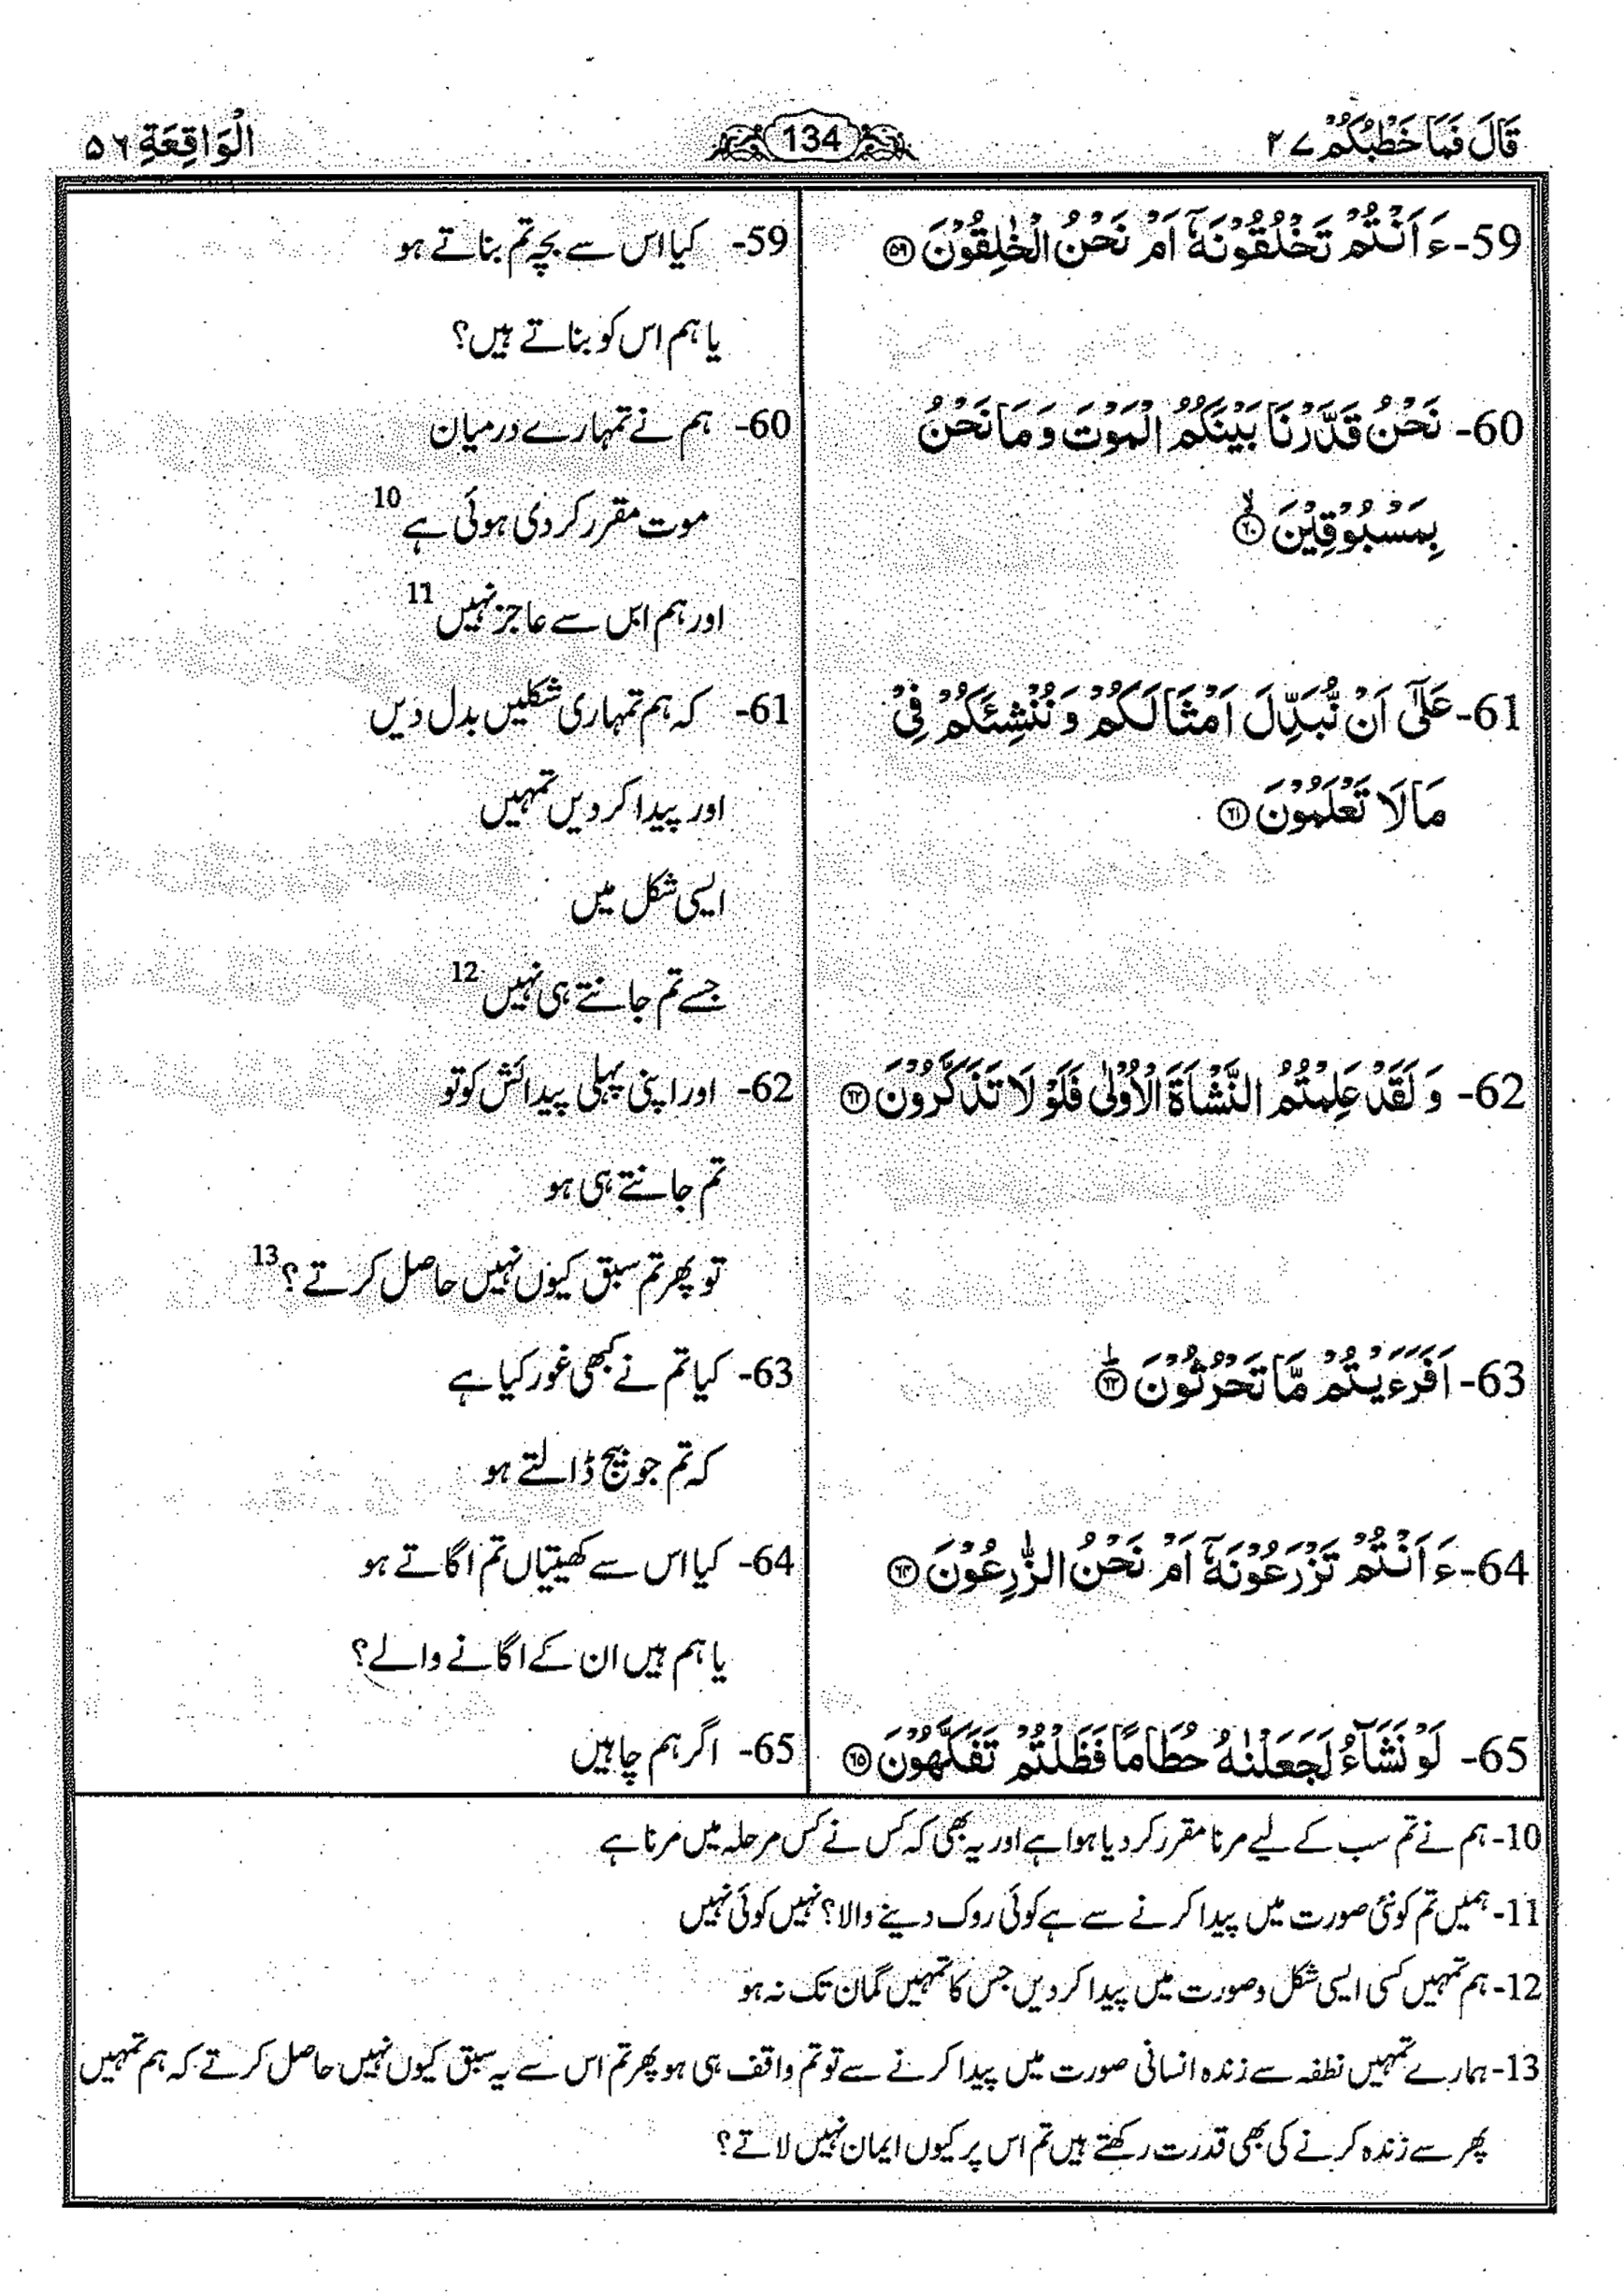 قَالَ فَمَا خَطْبُكُمْ ۲۷
134
الْوَاقِعَةِ ۵۶
59- ءَاَنْتُمْ تَخْلُقُوْنَهٗۤ اَمْ نَحْنُ الْخٰلِقُوْنَ ﴿۵۹﴾
60- نَحْنُ قَدَّرْنَا بَيْنَكُمُ الْمَوْتَ وَمَا نَحْنُ
بِمَسْبُوْقِيْنَ ﴿۶۰﴾ۙ
61- عَلٰۤى اَنْ نُّبَدِّلَ اَمْثَالَكُمْ وَنُنْشِئَكُمْ فِيْ
مَا لَا تَعْلَمُوْنَ ﴿۶۱﴾
62- وَلَقَدْ عَلِمْتُمُ النَّشْاَةَ الْاُوْلٰى فَلَوْ لَا تَذَكَّرُوْنَ ﴿۶۲﴾
63- اَفَرَءَيْتُمْ مَّا تَحْرُثُوْنَ ﴿۶۳﴾ؕ
64- ءَاَنْتُمْ تَزْرَعُوْنَهٗۤ اَمْ نَحْنُ الزّٰرِعُوْنَ ﴿۶۴﴾
65- لَوْ نَشَآءُ لَجَعَلْنٰهُ حُطَامًا فَظَلْتُمْ تَفَكَّهُوْنَ ﴿۶۵﴾
59- کیا اس سے بچہ تم بناتے ہو
یا ہم اس کو بناتے ہیں؟
60- ہم نے تمہارے درمیان
موت مقرر کر دی ہوئی ہے 10
اور ہم اس سے عاجز نہیں 11
61- کہ ہم تمہاری شکلیں بدل دیں
اور پیدا کر دیں تمہیں
ایسی شکل میں
جسے تم جانتے ہی نہیں 12
62- اور اپنی پہلی پیدائش کو تو
تم جانتے ہی ہو
تو پھر تم سبق کیوں نہیں حاصل کرتے؟ 13
63- کیا تم نے کبھی غور کیا ہے
کہ تم جو بیج ڈالتے ہو
64- کیا اس سے کھیتیاں تم اگاتے ہو
یا ہم ہیں ان کے اگانے والے؟
65- اگر ہم چاہیں
10- ہم نے تم سب کے لیے مرنا مقرر کر دیا ہوا ہے اور یہ بھی کہ کس نے کس مرحلہ میں مرنا ہے
11- ہمیں تم کو نئی صورت میں پیدا کرنے سے ہے کوئی روک دینے والا؟ نہیں کوئی نہیں
12- ہم تمہیں کسی ایسی شکل و صورت میں پیدا کر دیں جس کا تمہیں گمان تک نہ ہو
13- ہمارے تمہیں نطفہ سے زندہ انسانی صورت میں پیدا کرنے سے تو تم واقف ہی ہو پھر تم اس سے یہ سبق کیوں نہیں حاصل کرتے کہ ہم تمہیں
پھر سے زندہ کرنے کی بھی قدرت رکھتے ہیں تم اس پر کیوں ایمان نہیں لاتے؟